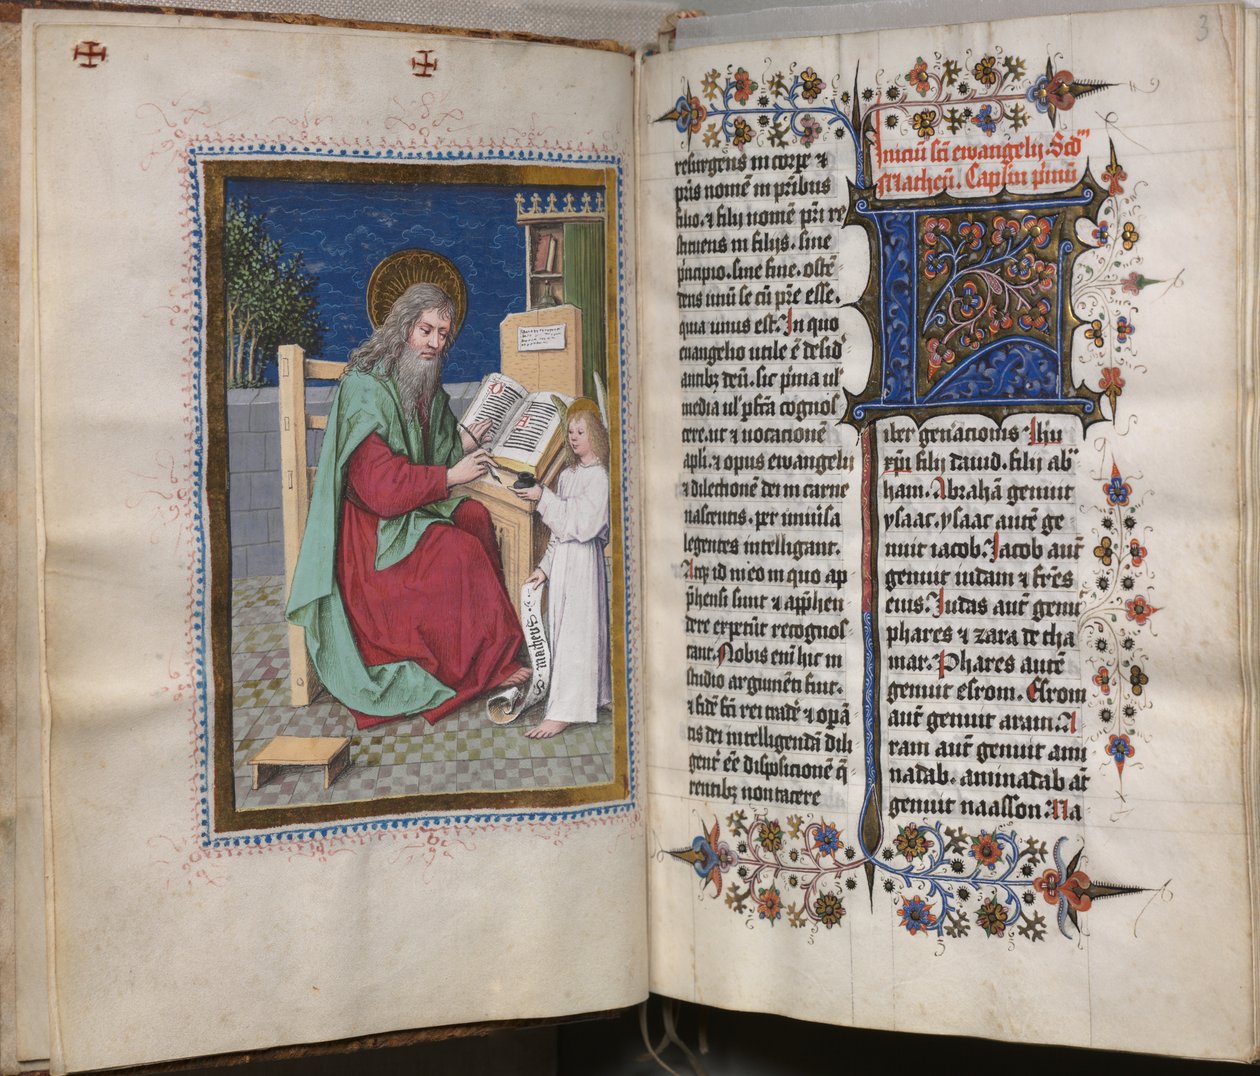 S. Matheus.
3
resurgens in corpe &
pris nomē in pribus
filio. & filij nomē pri re
stituens in filijs. sine
pncipio. sine fine. ostē
dens unū se cū pr̄e esse.
quia unus est. In quo
euangelio utile ē desid'
antibꝫ deū. sic pima ul'
media ul' pfcā cognos
cere. ut & uocationē
apli. & opus ewangelij
& dilectionē dei in carne
nascentis. per uniūsa
legentes intelligant.
Atqꝫ id in eo in quo ap
p̄hensi sunt & app̄hen
dere expetūt recognos
cant. Nobis enī hic in
studio argumēti fuit.
& fidē fcē rei tradē & opā
tis dei intelligendā dili
gent' eē disposicionē q̄
rentibꝫ non tacere
Iniciū scī ewangelij. Scdʒ
Matheū. Caplm pimū
L
iber gen̄acionis ihū
xp̄i filij dauid. filij ab
ham. Abrahā genuit
ysaac. ysaac autē ge
nuit iacob. Jacob aut̄
genuit iudam & fr̄es
eius. Judas aut̄ genu
phares & zara de tha
mar. Phares autē
genuit esrom. Esrom
aut̄ genuit aram. A
ram aut̄ genuit ami
nadab. aminadab at̄
genuit naasson. Na